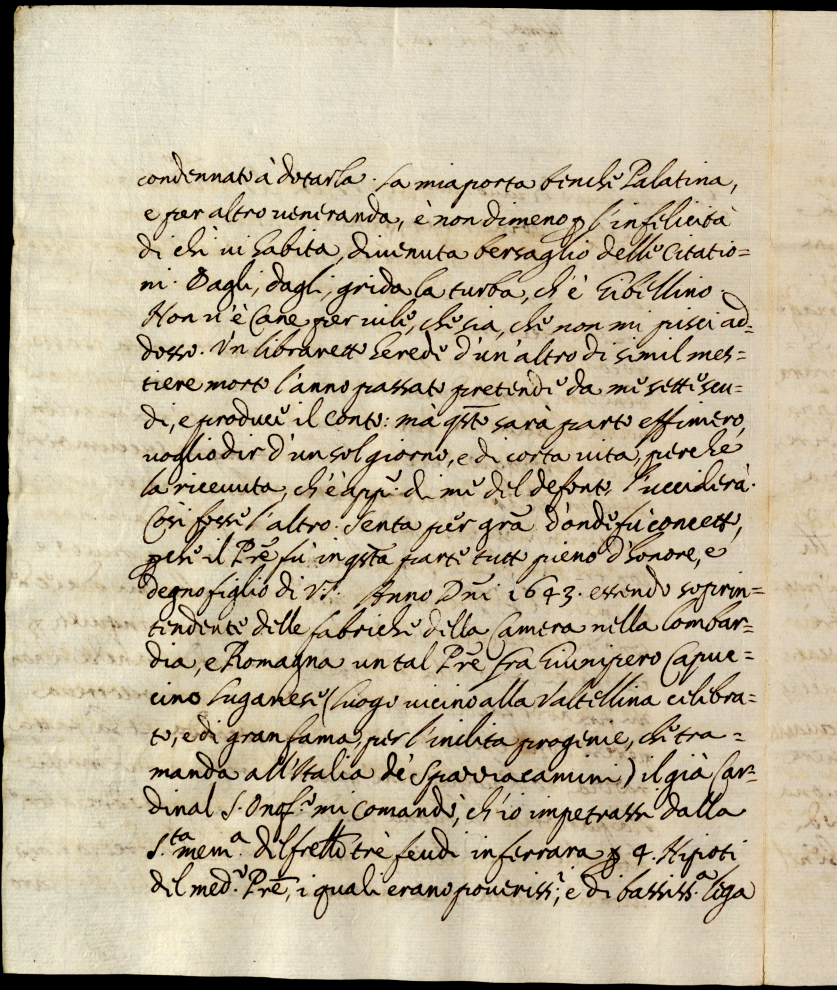 condennato à dotarla. La mia porta benche Palatina,
e per altro ueneranda, è non dimeno p l'infelicità
di chi ui habita, diuenuta bersaglio delle Citatio=
ni. Dagli, dagli, grida la turba, ch'è Gibellino.
Non u'è Cane per uile, che sia, che non mi pisci ad=
dosso. Vn libraretto herede d'un'altro di simil mes=
tiere morto l'anno passato pretende da me sette scu=
di, e produce il conto: mà qsto sarà parto effimero,
uoglio dir d'un sol giorno, e di corta uita, perche
la riceuuta, ch'è app. di me del defonto l'ucciderà.
Così fosse l'altro. Senta per gra d'onde fù concetto,
perche il Pre fù in qsta parte tutto pieno d'honore, e
degno figlio di V.S. Anno Dni 1643. essendo soprin=
tendente delle fabriche della Camera nella Lombar=
dia, e Romagna un tal Pre fra Giunipero Capuc=
cino Luganese (luogo uicino alla Valtellina celebra=
to, e di gran fama, per l'inclita progenie, che tra=
manda all'Italia de' Spazzacamini) il già Car=
dinal S. Onof.o mi comandò, ch'io impetrassi dalla
S.ta mem.a del frello trè feudi in ferrara p 4. Nipoti
del med.o Pre, i quali erano poueriss.i, e di bassiss.a lega